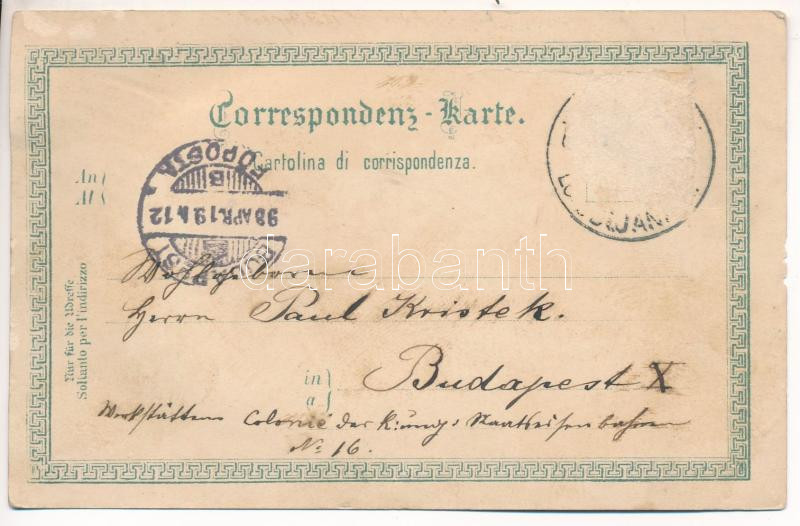 Correspondenz-Karte.
Cartolina di corrispondenza.
An
Al
BUDAPEST
98 APR.19 12
B
FŐPOSTA
LJUBLJANA
Nur für die Adresse
Soltanto per l'indirizzo
Wohlgeborne
Herrn Paul Kristek.
in
a
Budapest X
Werkstätten Colonie der K: ung: Staatseisenbahnen
No: 16.
darabanth